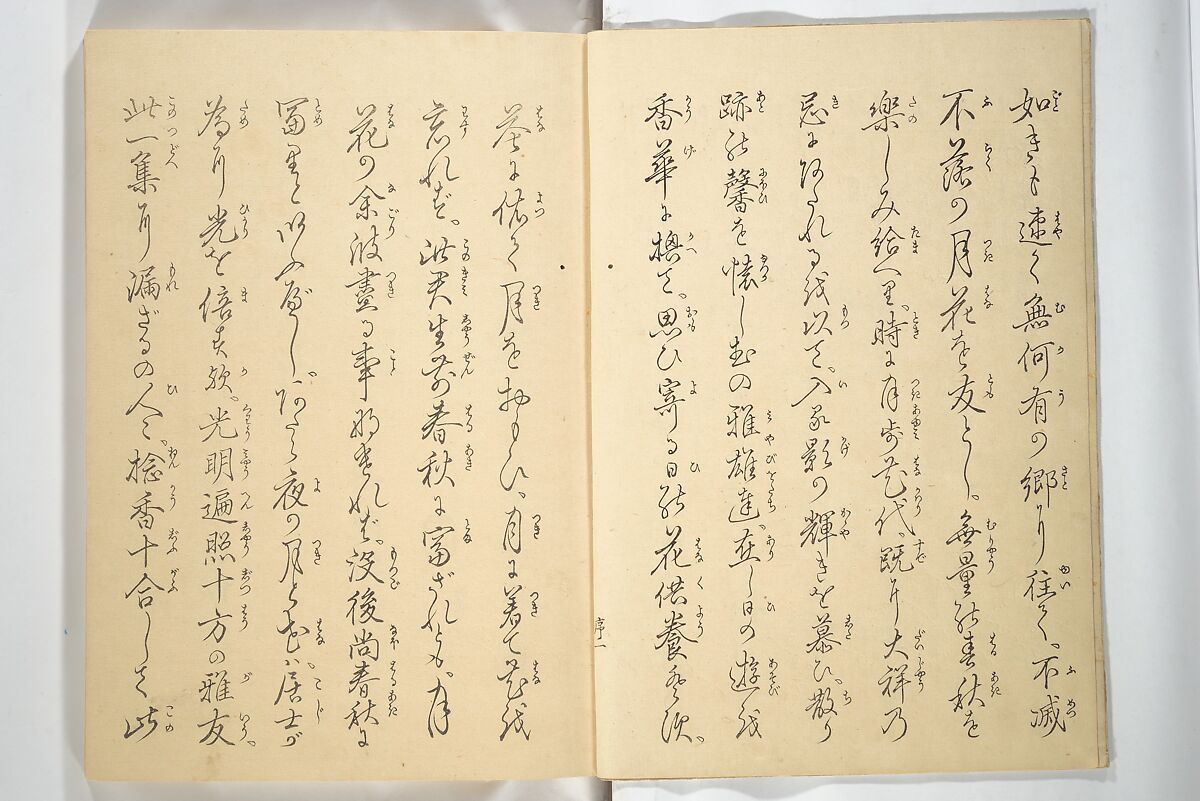 如きも速く無何有の郷に往て、不滅
不落の月花を友とし。無量の春秋を
樂しみ給へり。時に月歩花代、既に大祥乃
忌にあたれるを以て。入る影の輝きを慕ひ、散り
跡の馨を懐しむの雅雄達、在し日の遊を
香華に換て。思ひ寄る日の花供養をす。
花に依て月をおもひ、月に着て花を
忘れず。此君生前春秋に富ざれども。月
花の余波盡る事なければ。没後尚春秋に
冨りといふべし。あたら夜の月と花は、居士が
為に光を倍す歟。光明遍照十方の雅友。
此一集に漏ざるの人々。捻香十合して此
序一